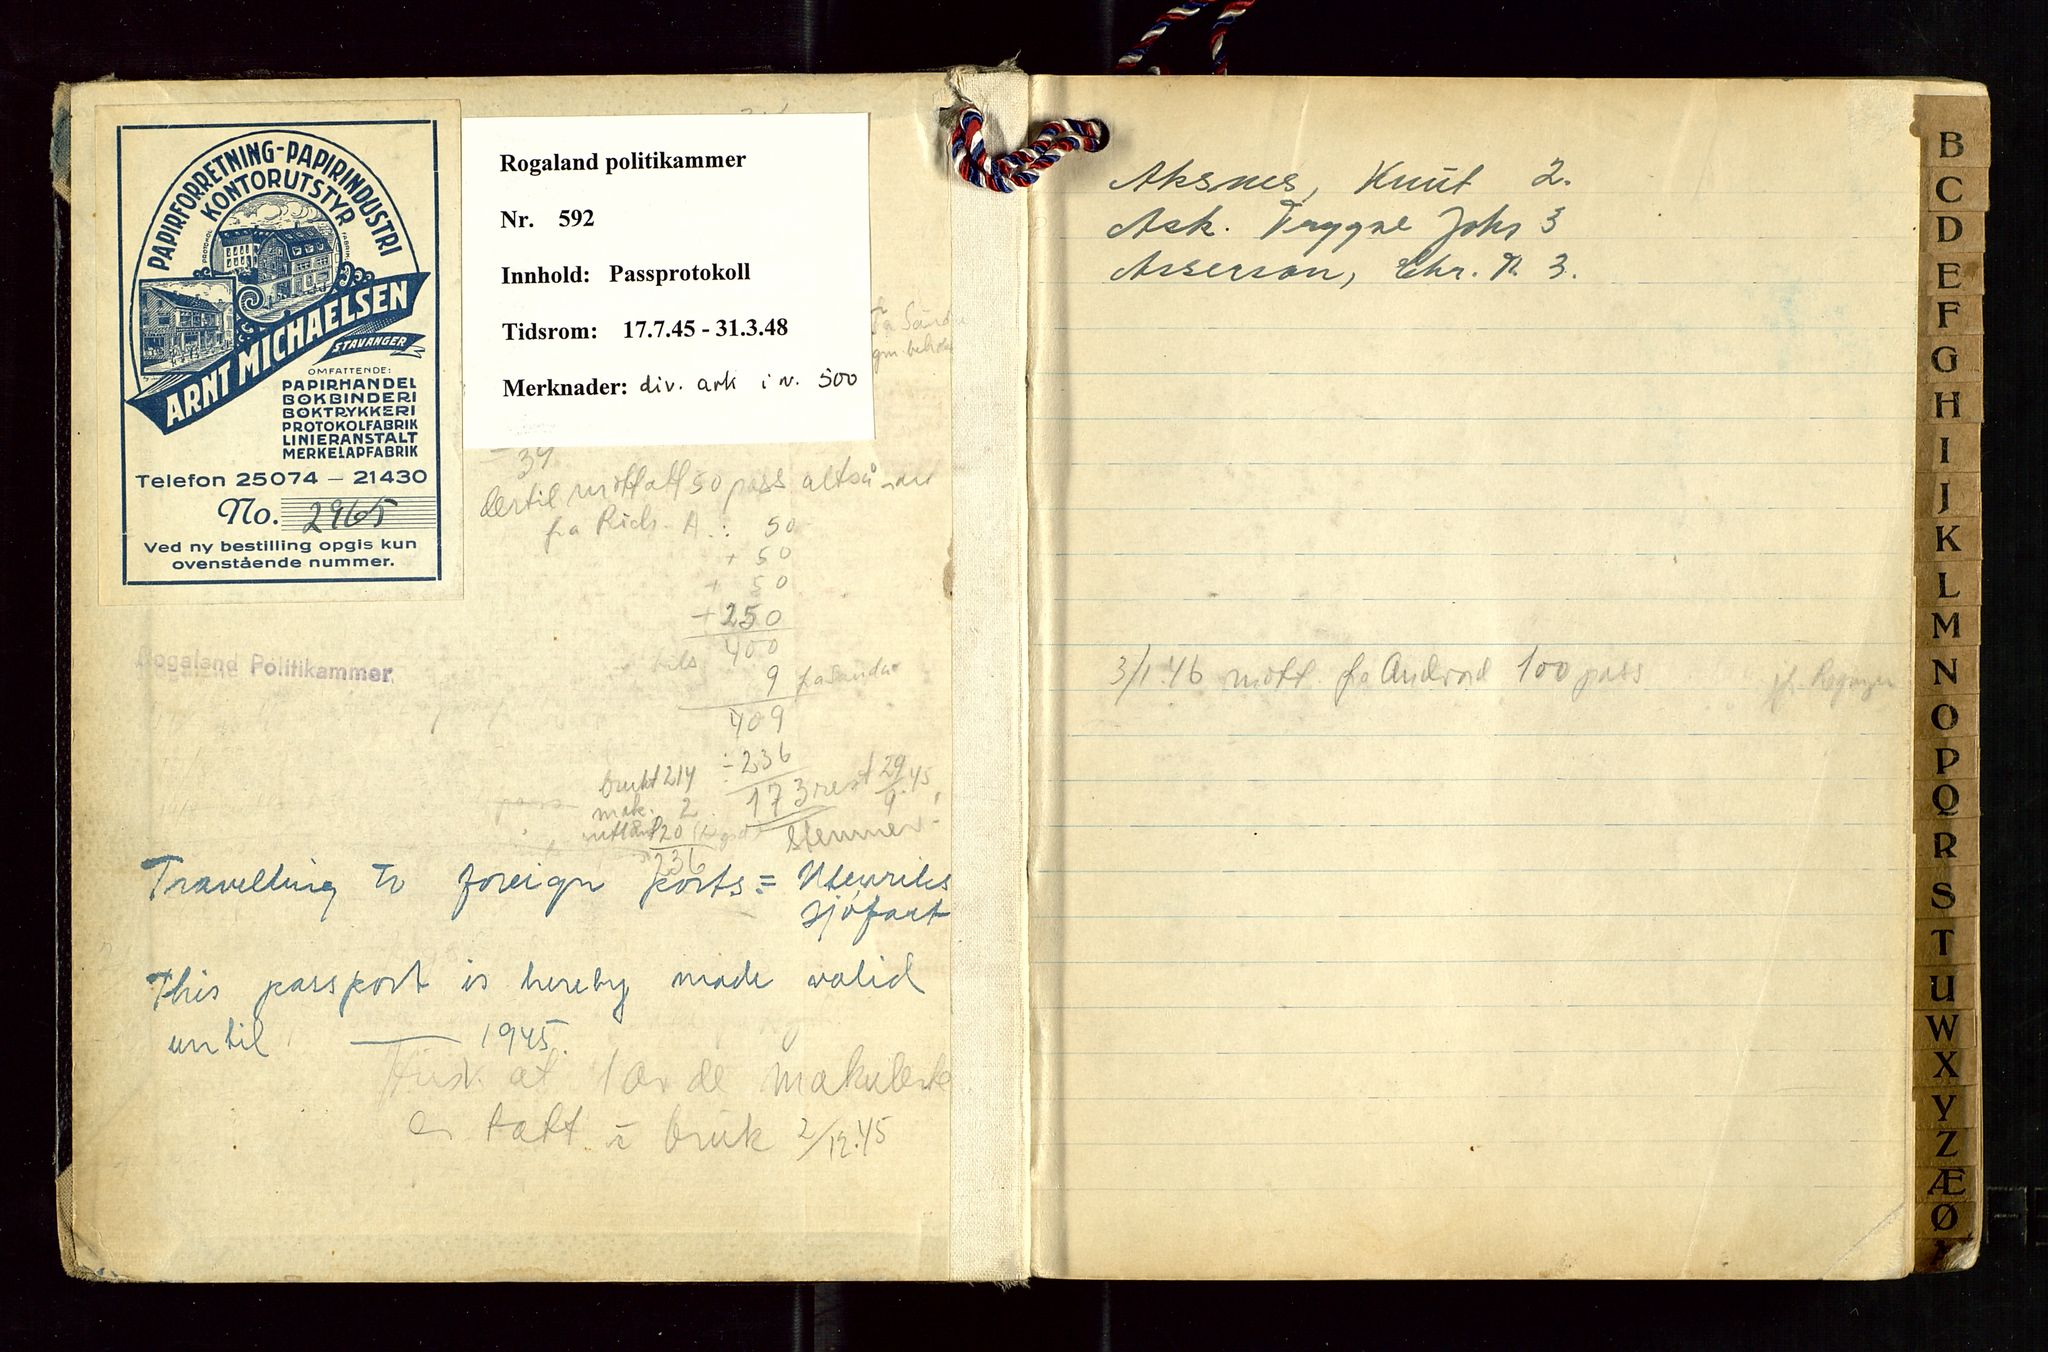 PAPIRFORRETNING-PAPIRINDUSTRI
KONTORUTSTYR
ARNT MICHAELSEN
STAVANGER
OMFATTENDE:
PAPIRHANDEL
BOKBINDERI
BOKTRYKKERI
PROTOKOLFABRIK
LINIERANSTALT
MERKELAPFABRIK
Telefon 25074 – 21430
No. 2965
Ved ny bestilling opgis kun
ovenstående nummer.
Rogaland politikammer
Nr. 592
Innhold: Passprotokoll
Tidsrom: 17.7.45 - 31.3.48
Merknader: div. ark i nr. 500
34
dertil mottatt 50 pass altså
fra Rich. A.: 50
+ 50
+ 50
+ 250
400
9 fra Sanda
409
÷ 236
173 rest 29/9.45,
brukt 214
mak. 2
20
236
Stemmer
Rogaland Politikammer
Travelling to foreign ports = Utenriks
sjøfart
This passport is hereby made valid
until ——— 1945.
Husk at 1 av de makulerte
er tatt i bruk 2/12.45
Aksnes, Knut 2.
Ask. Trygve Johs 3
Asserson, Chr. R. 3.
3/1.46 mott. fra Androd 100 pass
B
C
D
E
F
G
H
I
J
K
L
M
N
O
P
Q
R
S
T
U
W
X
Y
Z
Æ
Ø